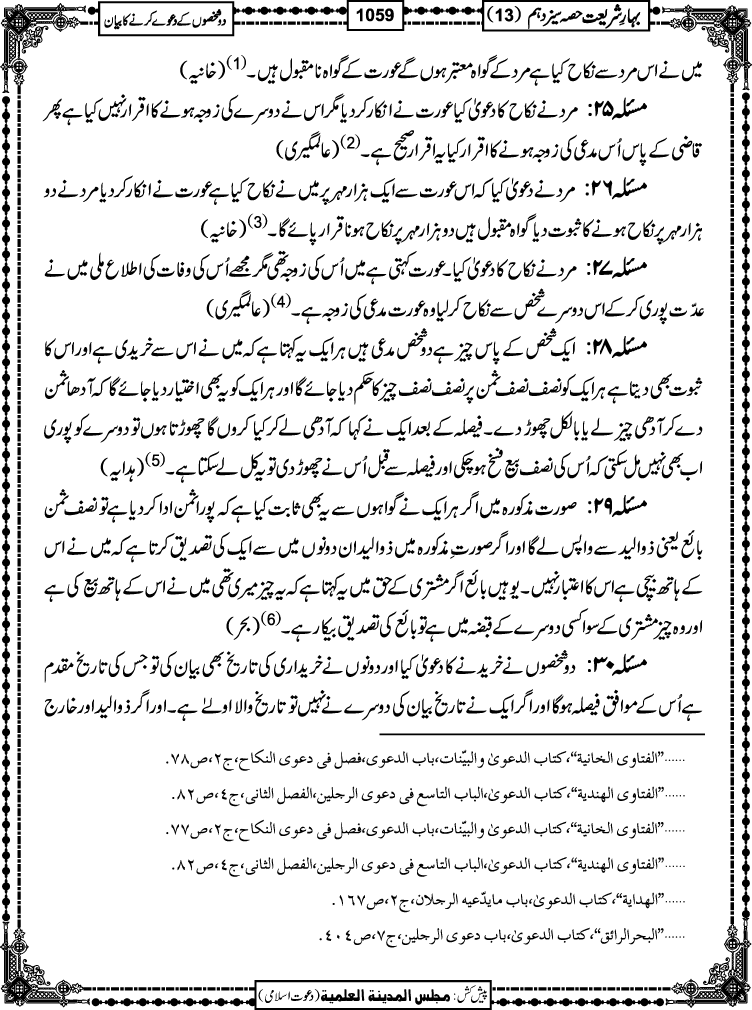 بہارِ شریعت حصہ سیزدہم (13)
1059
دو شخصوں کے دعوے کرنے کا بیان
میں نے اس مرد سے نکاح کیا ہے مرد کے گواہ معتبر ہوں گے عورت کے گواہ نا مقبول ہیں۔(1) (خانیہ)
مسئلہ ۲۵: مرد نے نکاح کا دعویٰ کیا عورت نے انکار کر دیا مگر اس نے دوسرے کی زوجہ ہونے کا اقرار نہیں کیا ہے پھر
قاضی کے پاس اُس مدعی کی زوجہ ہونے کا اقرار کیا یہ اقرار صحیح ہے۔(2) (عالمگیری)
مسئلہ ۲۶: مرد نے دعویٰ کیا کہ اس عورت سے ایک ہزار مہر پر میں نے نکاح کیا ہے عورت نے انکار کر دیا مرد نے دو
ہزار مہر پر نکاح ہونے کا ثبوت دیا گواہ مقبول ہیں دو ہزار مہر پر نکاح ہونا قرار پائے گا۔(3) (خانیہ)
مسئلہ ۲۷: مرد نے نکاح کا دعویٰ کیا۔ عورت کہتی ہے میں اُس کی زوجہ تھی مگر مجھے اُس کی وفات کی اطلاع ملی میں نے
عدّت پوری کر کے اس دوسرے شخص سے نکاح کر لیا وہ عورت مدعی کی زوجہ ہے۔(4) (عالمگیری)
مسئلہ ۲۸: ایک شخص کے پاس چیز ہے دو شخص مدعی ہیں ہر ایک یہ کہتا ہے کہ میں نے اس سے خریدی ہے اور اس کا
ثبوت بھی دیتا ہے ہر ایک کو نصف نصف ثمن پر نصف نصف چیز کا حکم دیا جائے گا اور ہر ایک کو یہ بھی اختیار دیا جائے گا کہ آدھا ثمن
دے کر آدھی چیز لے یا بالکل چھوڑ دے۔ فیصلہ کے بعد ایک نے کہا کہ آدھی لے کر کیا کروں گا چھوڑتا ہوں تو دوسرے کو پوری
اب بھی نہیں مل سکتی کہ اُس کی نصف بیع فسخ ہو چکی اور فیصلہ سے قبل اُس نے چھوڑ دی تو یہ کل لے سکتا ہے۔(5) (ہدایہ)
مسئلہ ۲۹: صورت مذکورہ میں اگر ہر ایک نے گواہوں سے یہ بھی ثابت کیا ہے کہ پورا ثمن ادا کر دیا ہے تو نصف ثمن
بائع یعنی ذوالید سے واپس لے گا اور اگر صورتِ مذکورہ میں ذوالید ان دونوں میں سے ایک کی تصدیق کرتا ہے کہ میں نے اس
کے ہاتھ بیچی ہے اس کا اعتبار نہیں۔ یوہیں بائع اگر مشتری کے حق میں یہ کہتا ہے کہ یہ چیز میری تھی میں نے اس کے ہاتھ بیع کی ہے
اور وہ چیز مشتری کے سوا کسی دوسرے کے قبضہ میں ہے تو بائع کی تصدیق بیکار ہے۔(6) (بحر)
مسئلہ ۳۰: دو شخصوں نے خریدنے کا دعویٰ کیا اور دونوں نے خریداری کی تاریخ بھی بیان کی تو جس کی تاریخ مقدم
ہے اُس کے موافق فیصلہ ہوگا اور اگر ایک نے تاریخ بیان کی دوسرے نے نہیں تو تاریخ والا اولےٰ ہے۔ اور اگر ذوالید اور خارج
......”الفتاوی الخانیة“،کتاب الدعویٰ والبیّنات،باب الدعوی،فصل فی دعوی النکاح،ج۲،ص۷۸.
......”الفتاوی الهندیة“،کتاب الدعویٰ،الباب التاسع فی دعوی الرجلین،الفصل الثانی،ج٤،ص۸۲.
......”الفتاوی الخانیة“،کتاب الدعویٰ والبیّنات،باب الدعوی،فصل فی دعوی النکاح،ج۲،ص۷۷.
......”الفتاوی الهندیة“،کتاب الدعویٰ،الباب التاسع فی دعوی الرجلین،الفصل الثانی،ج٤،ص۸۲.
......”الهدایة“،کتاب الدعویٰ،باب مایدّعیه الرجلان،ج۲،ص۱٦۷.
......”البحرالرائق“،کتاب الدعویٰ،باب دعوی الرجلین،ج۷،ص٤۰٤.
پیش کش: مجلس المدینة العلمیة (دعوت اسلامی)